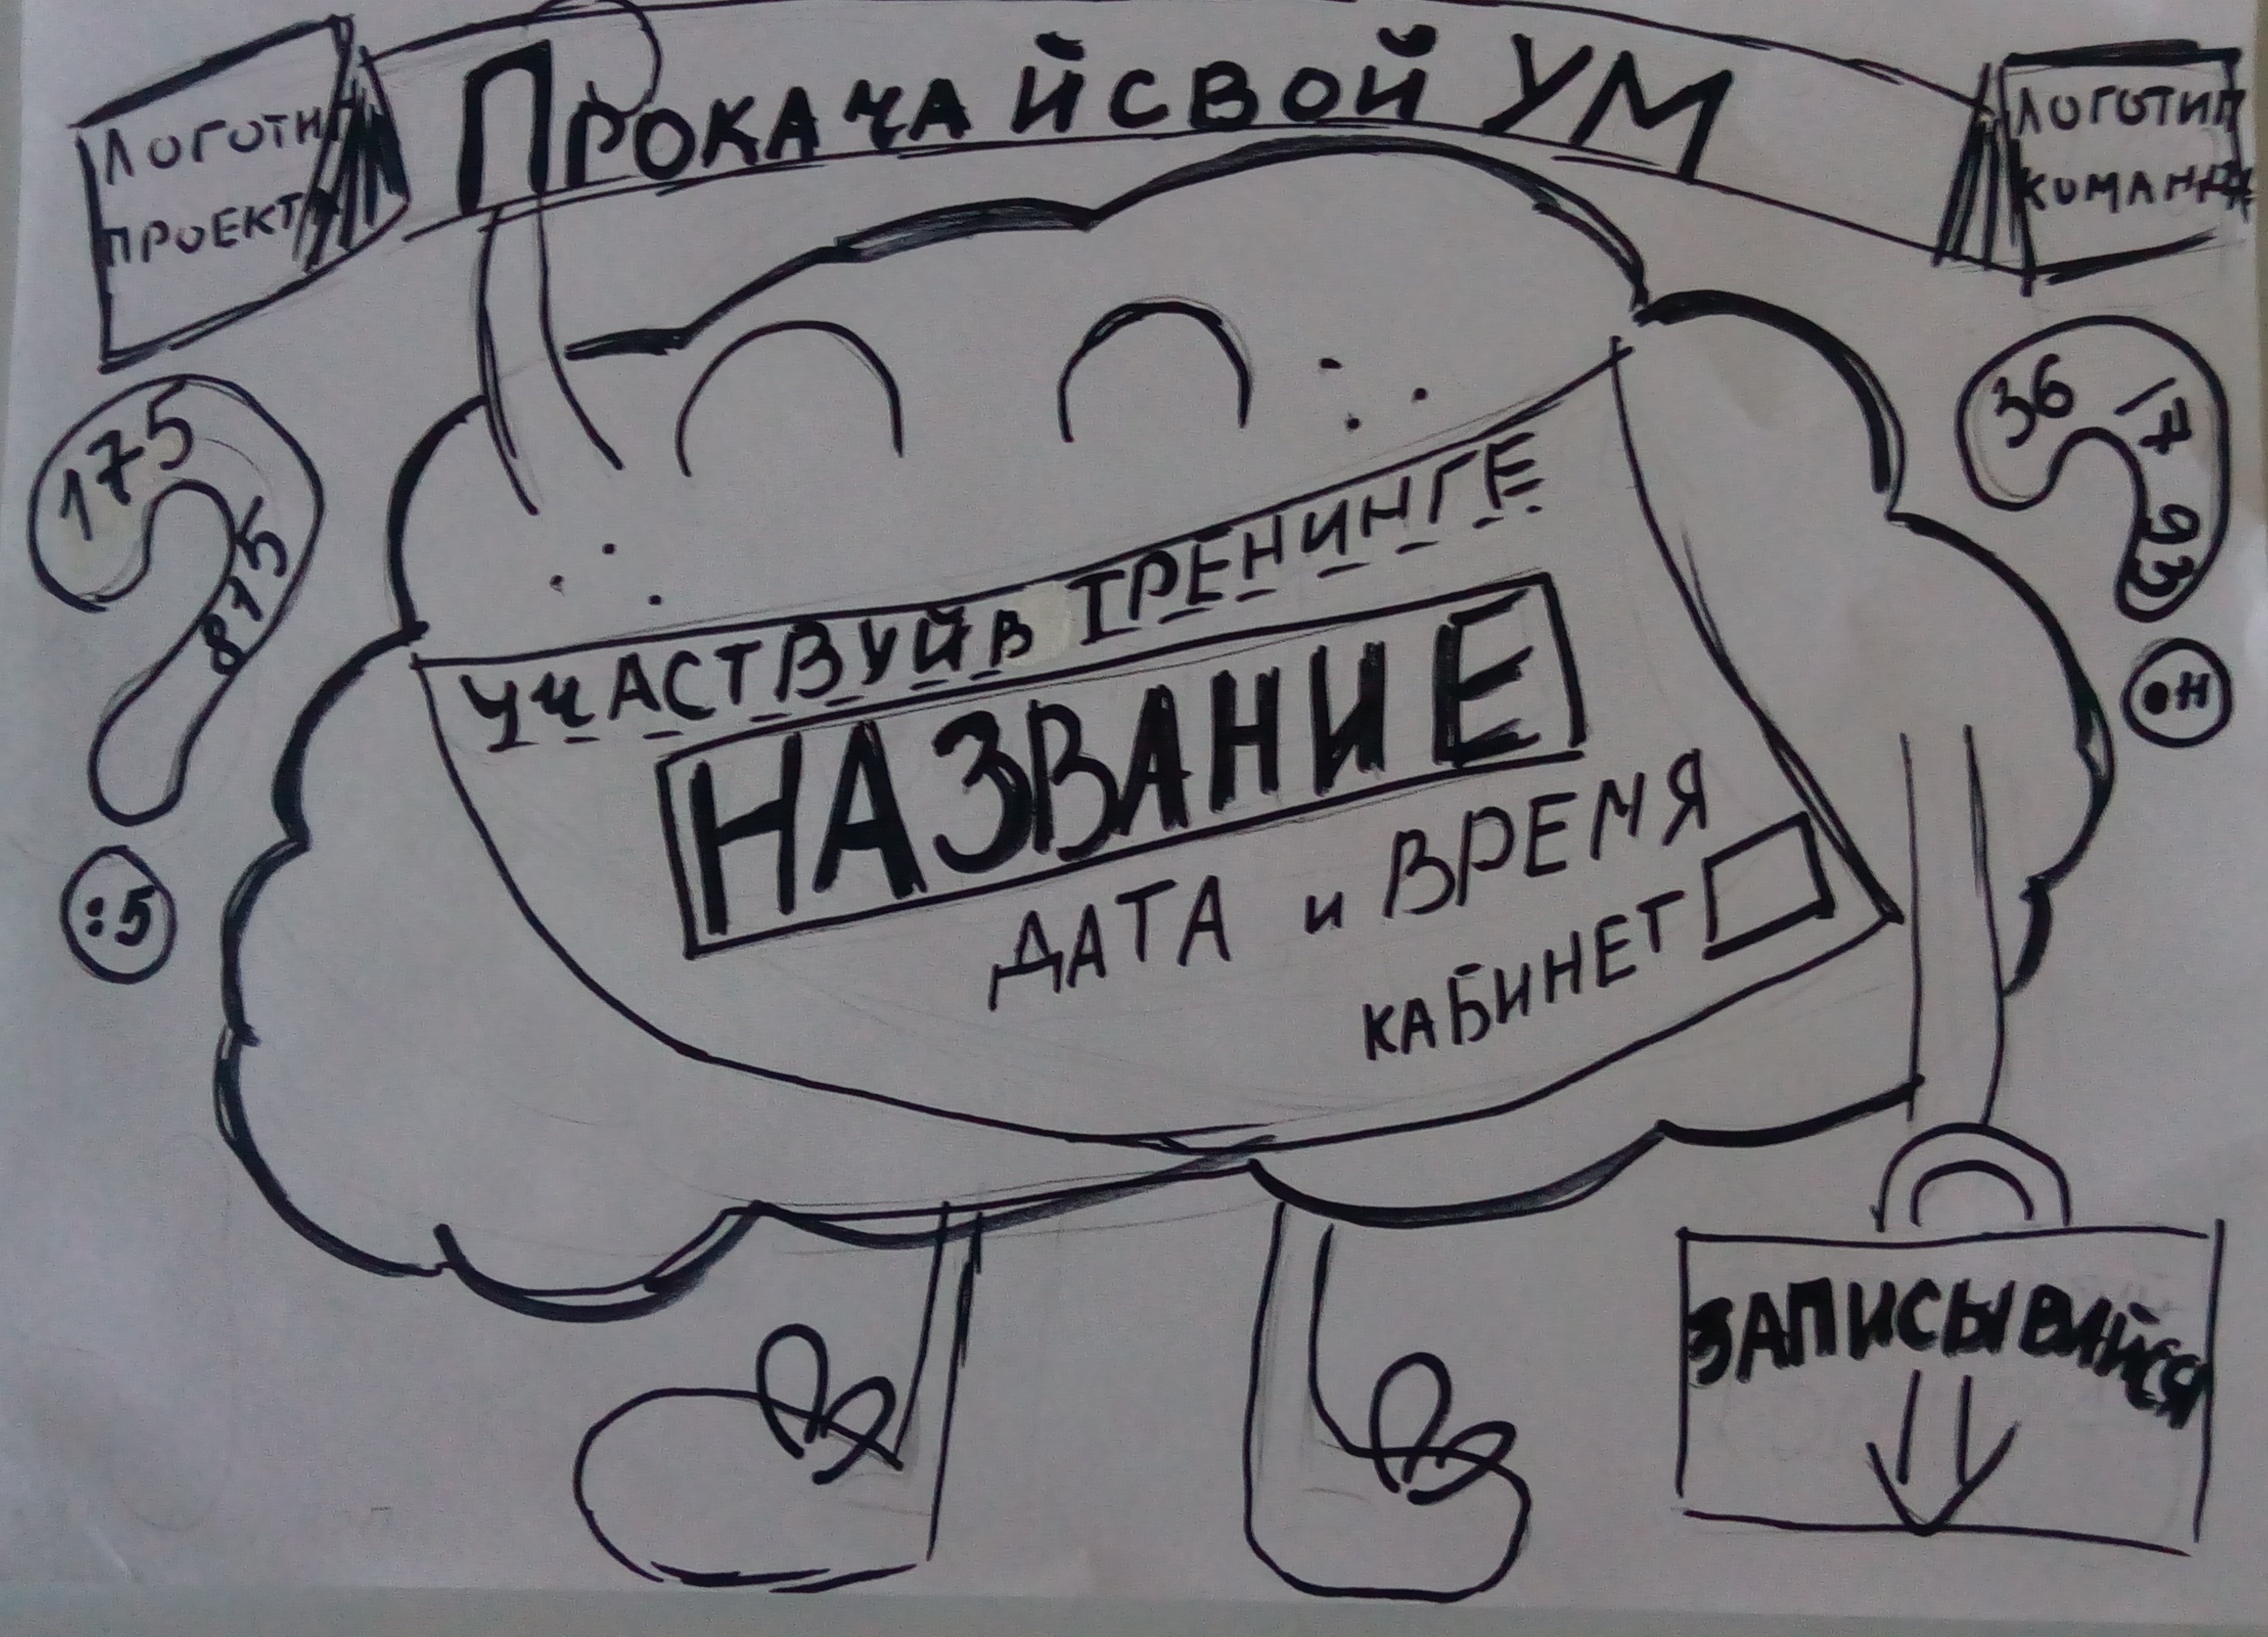 ПРОКАЧАЙ СВОЙ УМ
ЛОГОТИП
ПРОЕКТА
ЛОГОТИП
КОМАНДЫ
175
875
:5
36
17
93
УЧАСТВУЙ В ТРЕНИНГЕ
НАЗВАНИЕ
ДАТА и ВРЕМЯ
КАБИНЕТ
ЗАПИСЫВАЙСЯ